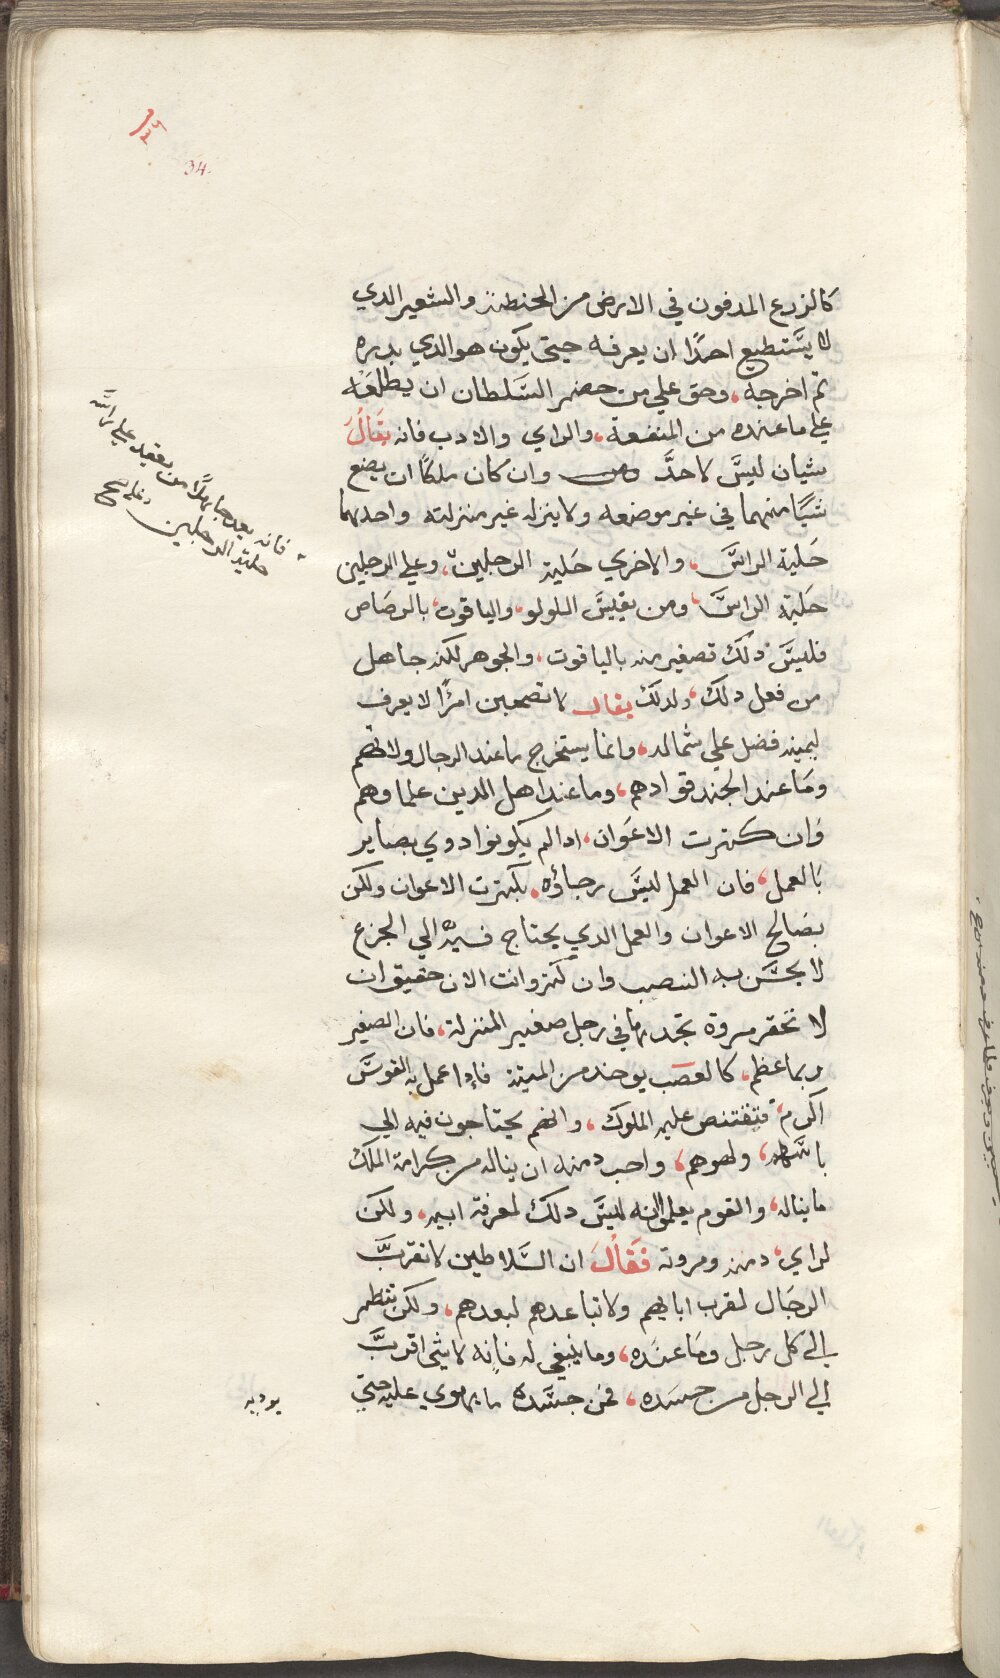 34
كالزرع المدفون في الارض من الحنطة والشعير الدي
لا يستطيع احدًا ان يعرفه حيتى يكون هو الدي بدره
تم اخرجه، وحق علي من حضر السلطان ان يطلعه
علي ما عنده من المنفعة، والراي والادب فانه يقال
شيان ليس لاحدَّ وان كان ملكًا ان يضع
شيًا منهما في غير موضعه ولا ينزله غير منزلته واحدهما
حلية الراس، والاخري حلية الرجلين، وعلي الرجلين
حلية الراس، ومن يقيس اللولو، والياقوت، بالرصاص
فليس دلك تصغير منه بالياقوت، والجوهر لكنه جاهل
من فعل دلك، ولدلك يقال لا تصحبن امرًا لا يعرف
ليمينه فضل علي شماله، وانما يستخرج ما عند الرجال ولاتهم
وما عند الجند قوادهم، وما عند اهل الدين علماوهم
وان كترت الاعوان، ادا لم يكونوا دوي بصاير
بالعمل، فان العمل ليس رجاؤه، بكترت الاعوان ولكن
بصالح الاعوان والعمل الدي يحتاج فيه الي الجزع
لا يحسن به النصب وان كتر وانت الان حقيق ان
لا تحقر مروة تجدها في رجل صغير المنزلة، فان الصغير
ربما عظم، كالعصب يوخد من الميتة فإدا عمل به القوس
اكرم، فتقتنص عليه الملوك، وانهم يحتاجون فيه الي
باسهم، ولهوهم، واحب دمنه ان يناله من كرامة الملك
ما يناله، والقوم يعلموا انه ليس دلك لمعرفة ابيه، ولكن
لراي، دمنه ومروته فقال ان السلاطين لا تقرب
الرجال لقرب ابايهم ولا تباعدهم لبعدهم، ولكن تنظر
إلى كل رجل وما عنده، وما ينبغي له فانه لا شى اقرب
إلى الرجل من جسده، فمن جسده ما يهوي عليه حتي
يوديه
فانه يعد جاهلًا من يعقد علي راسه
حلية الرجلين